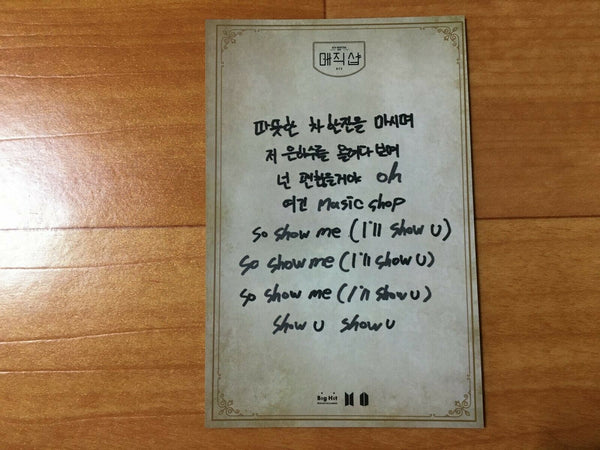 매직샵
BTS
따뜻한 차 한잔을 마시며
저 은하수를 올려다보며
넌 괜찮을거야 oh
여긴 Magic shop
so show me (I'll show U)
so show me (I'll show U)
so show me (I'll show U)
show U show U
Big Hit
ENTERTAINMENT